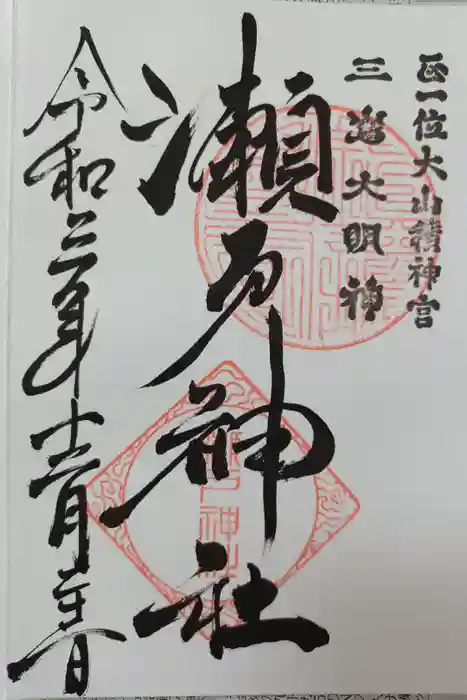 正一位大山積神宮
三嶌大明神
瀬戸神社
令和三年十二月